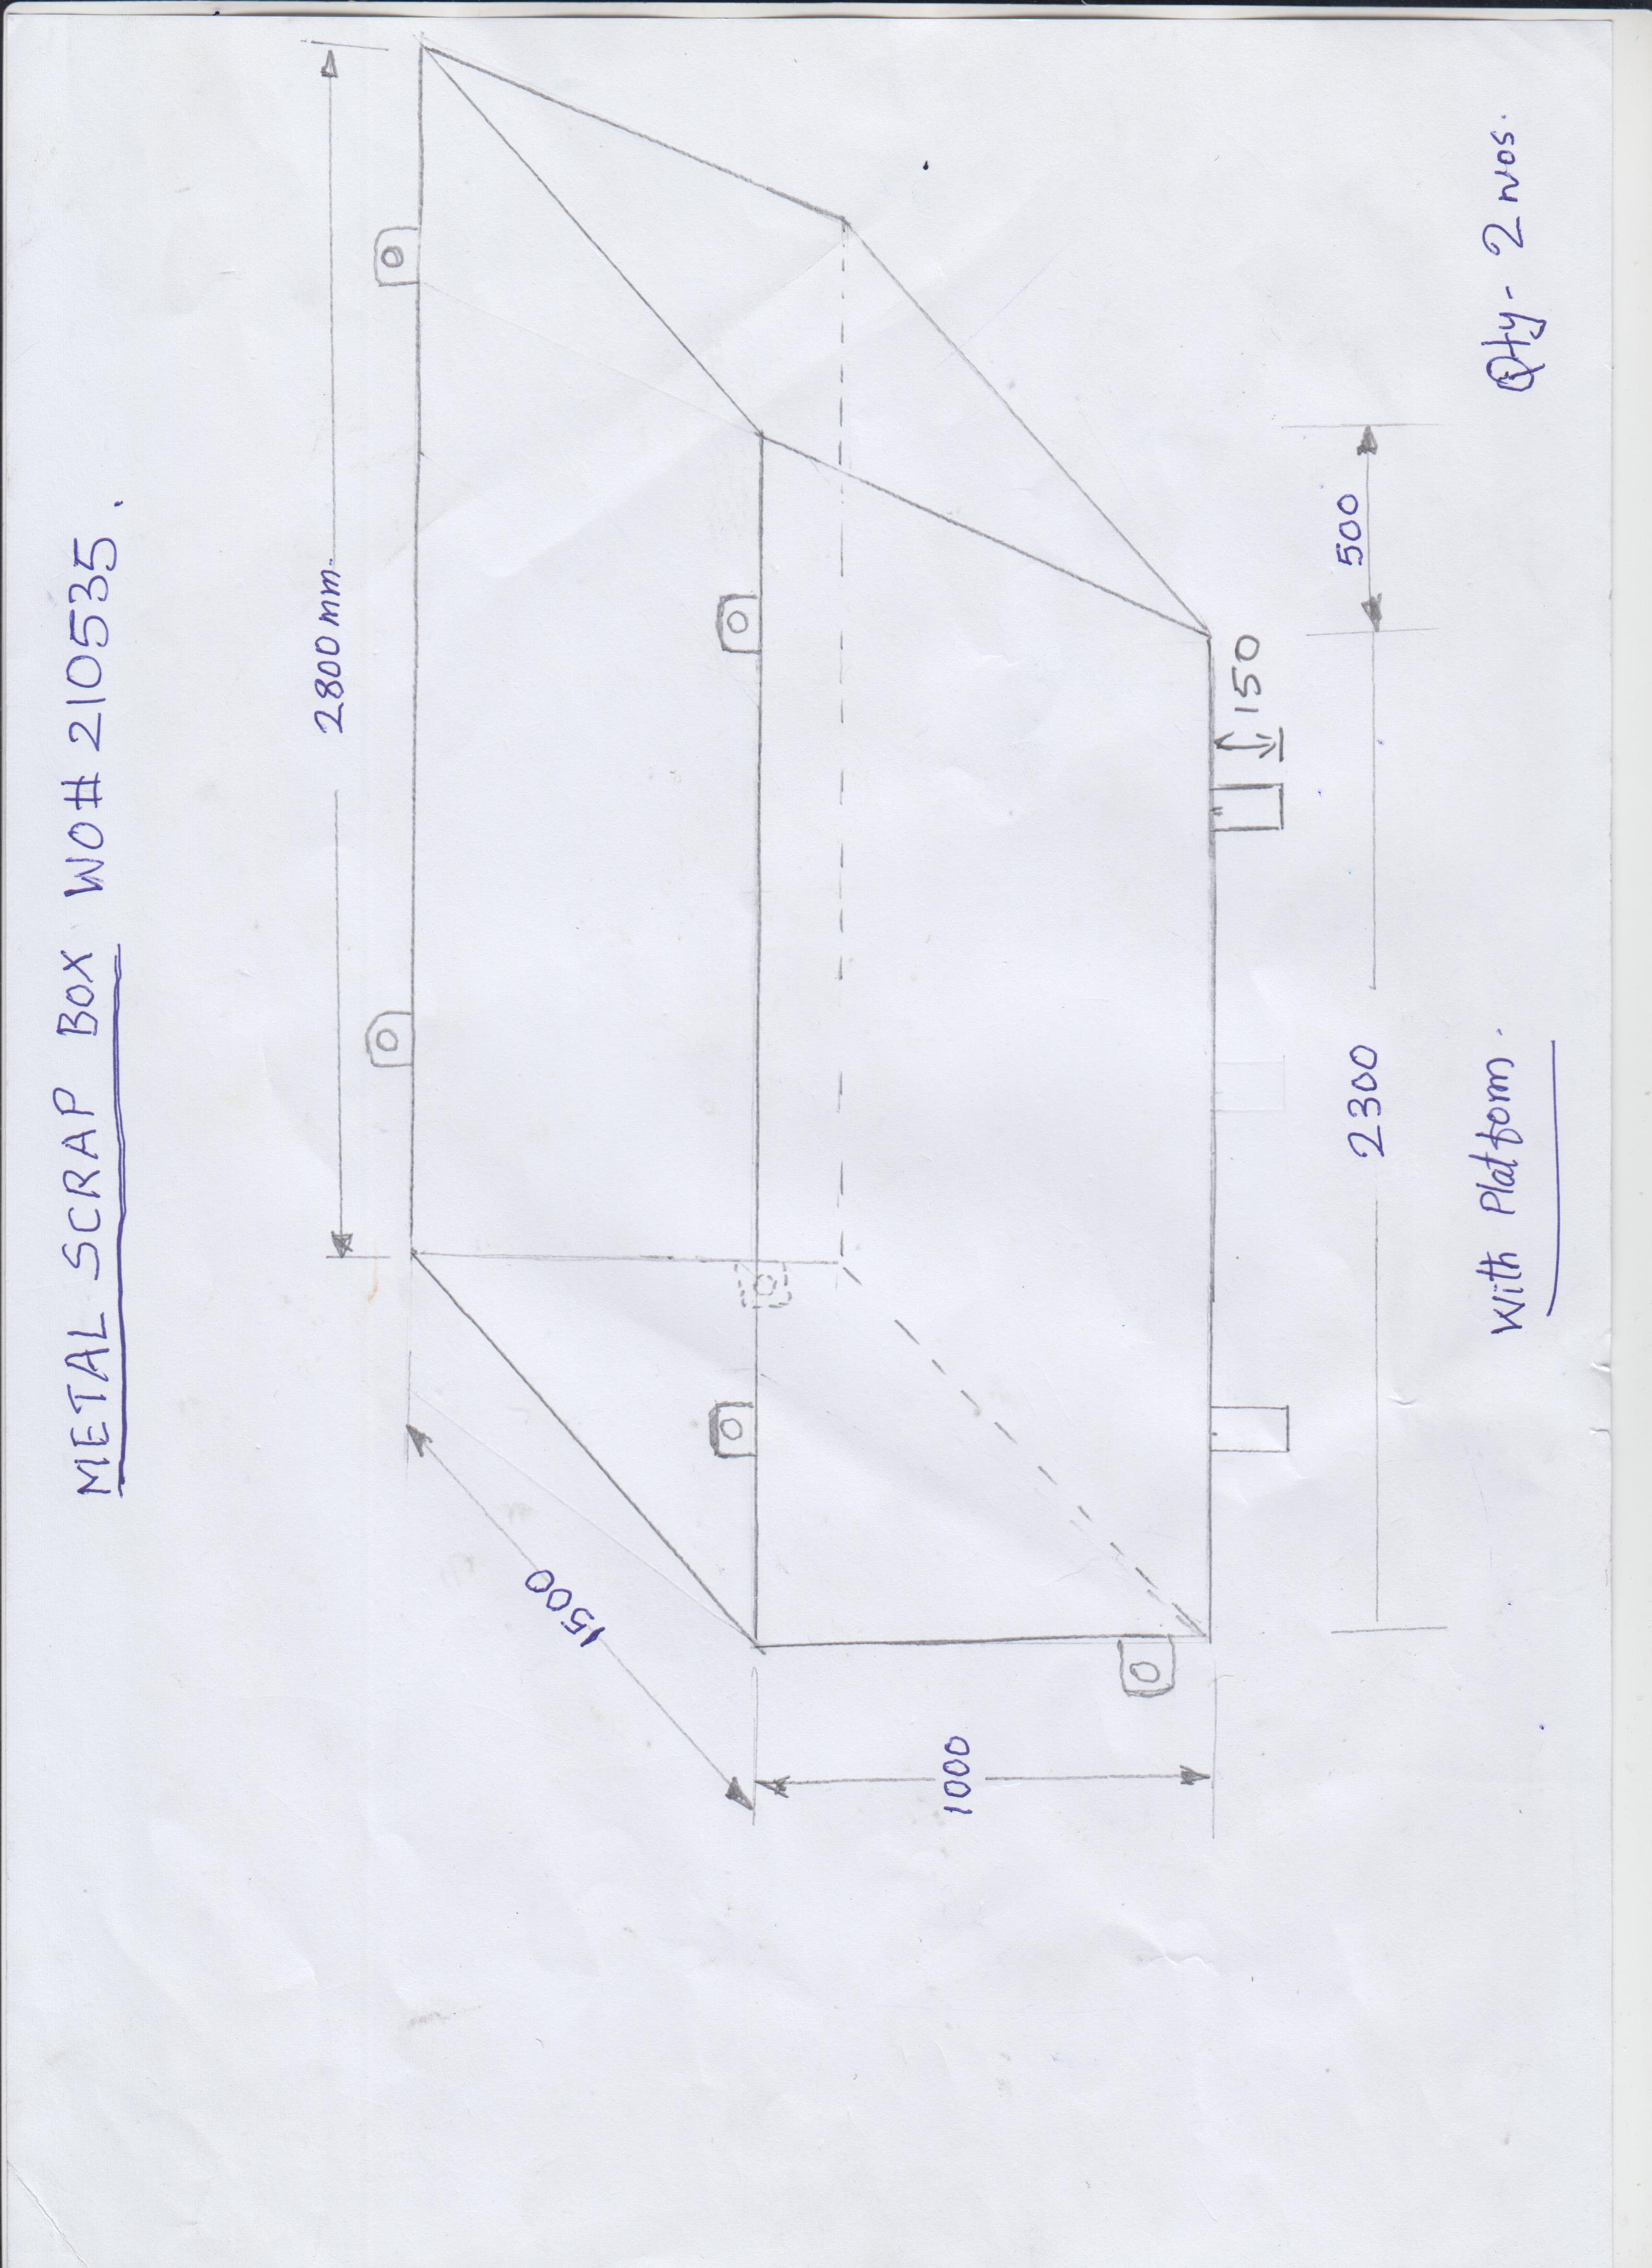 METAL SCRAP BOX WO# 210535.
2800mm.
1500
1000
150
500
2300
With Platform.
Qty- 2 nos.